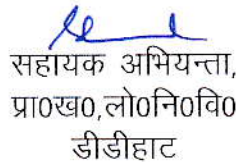 सहायक अभियन्ता,
प्रा०ख०,लो०नि०वि०
डीडीहाट